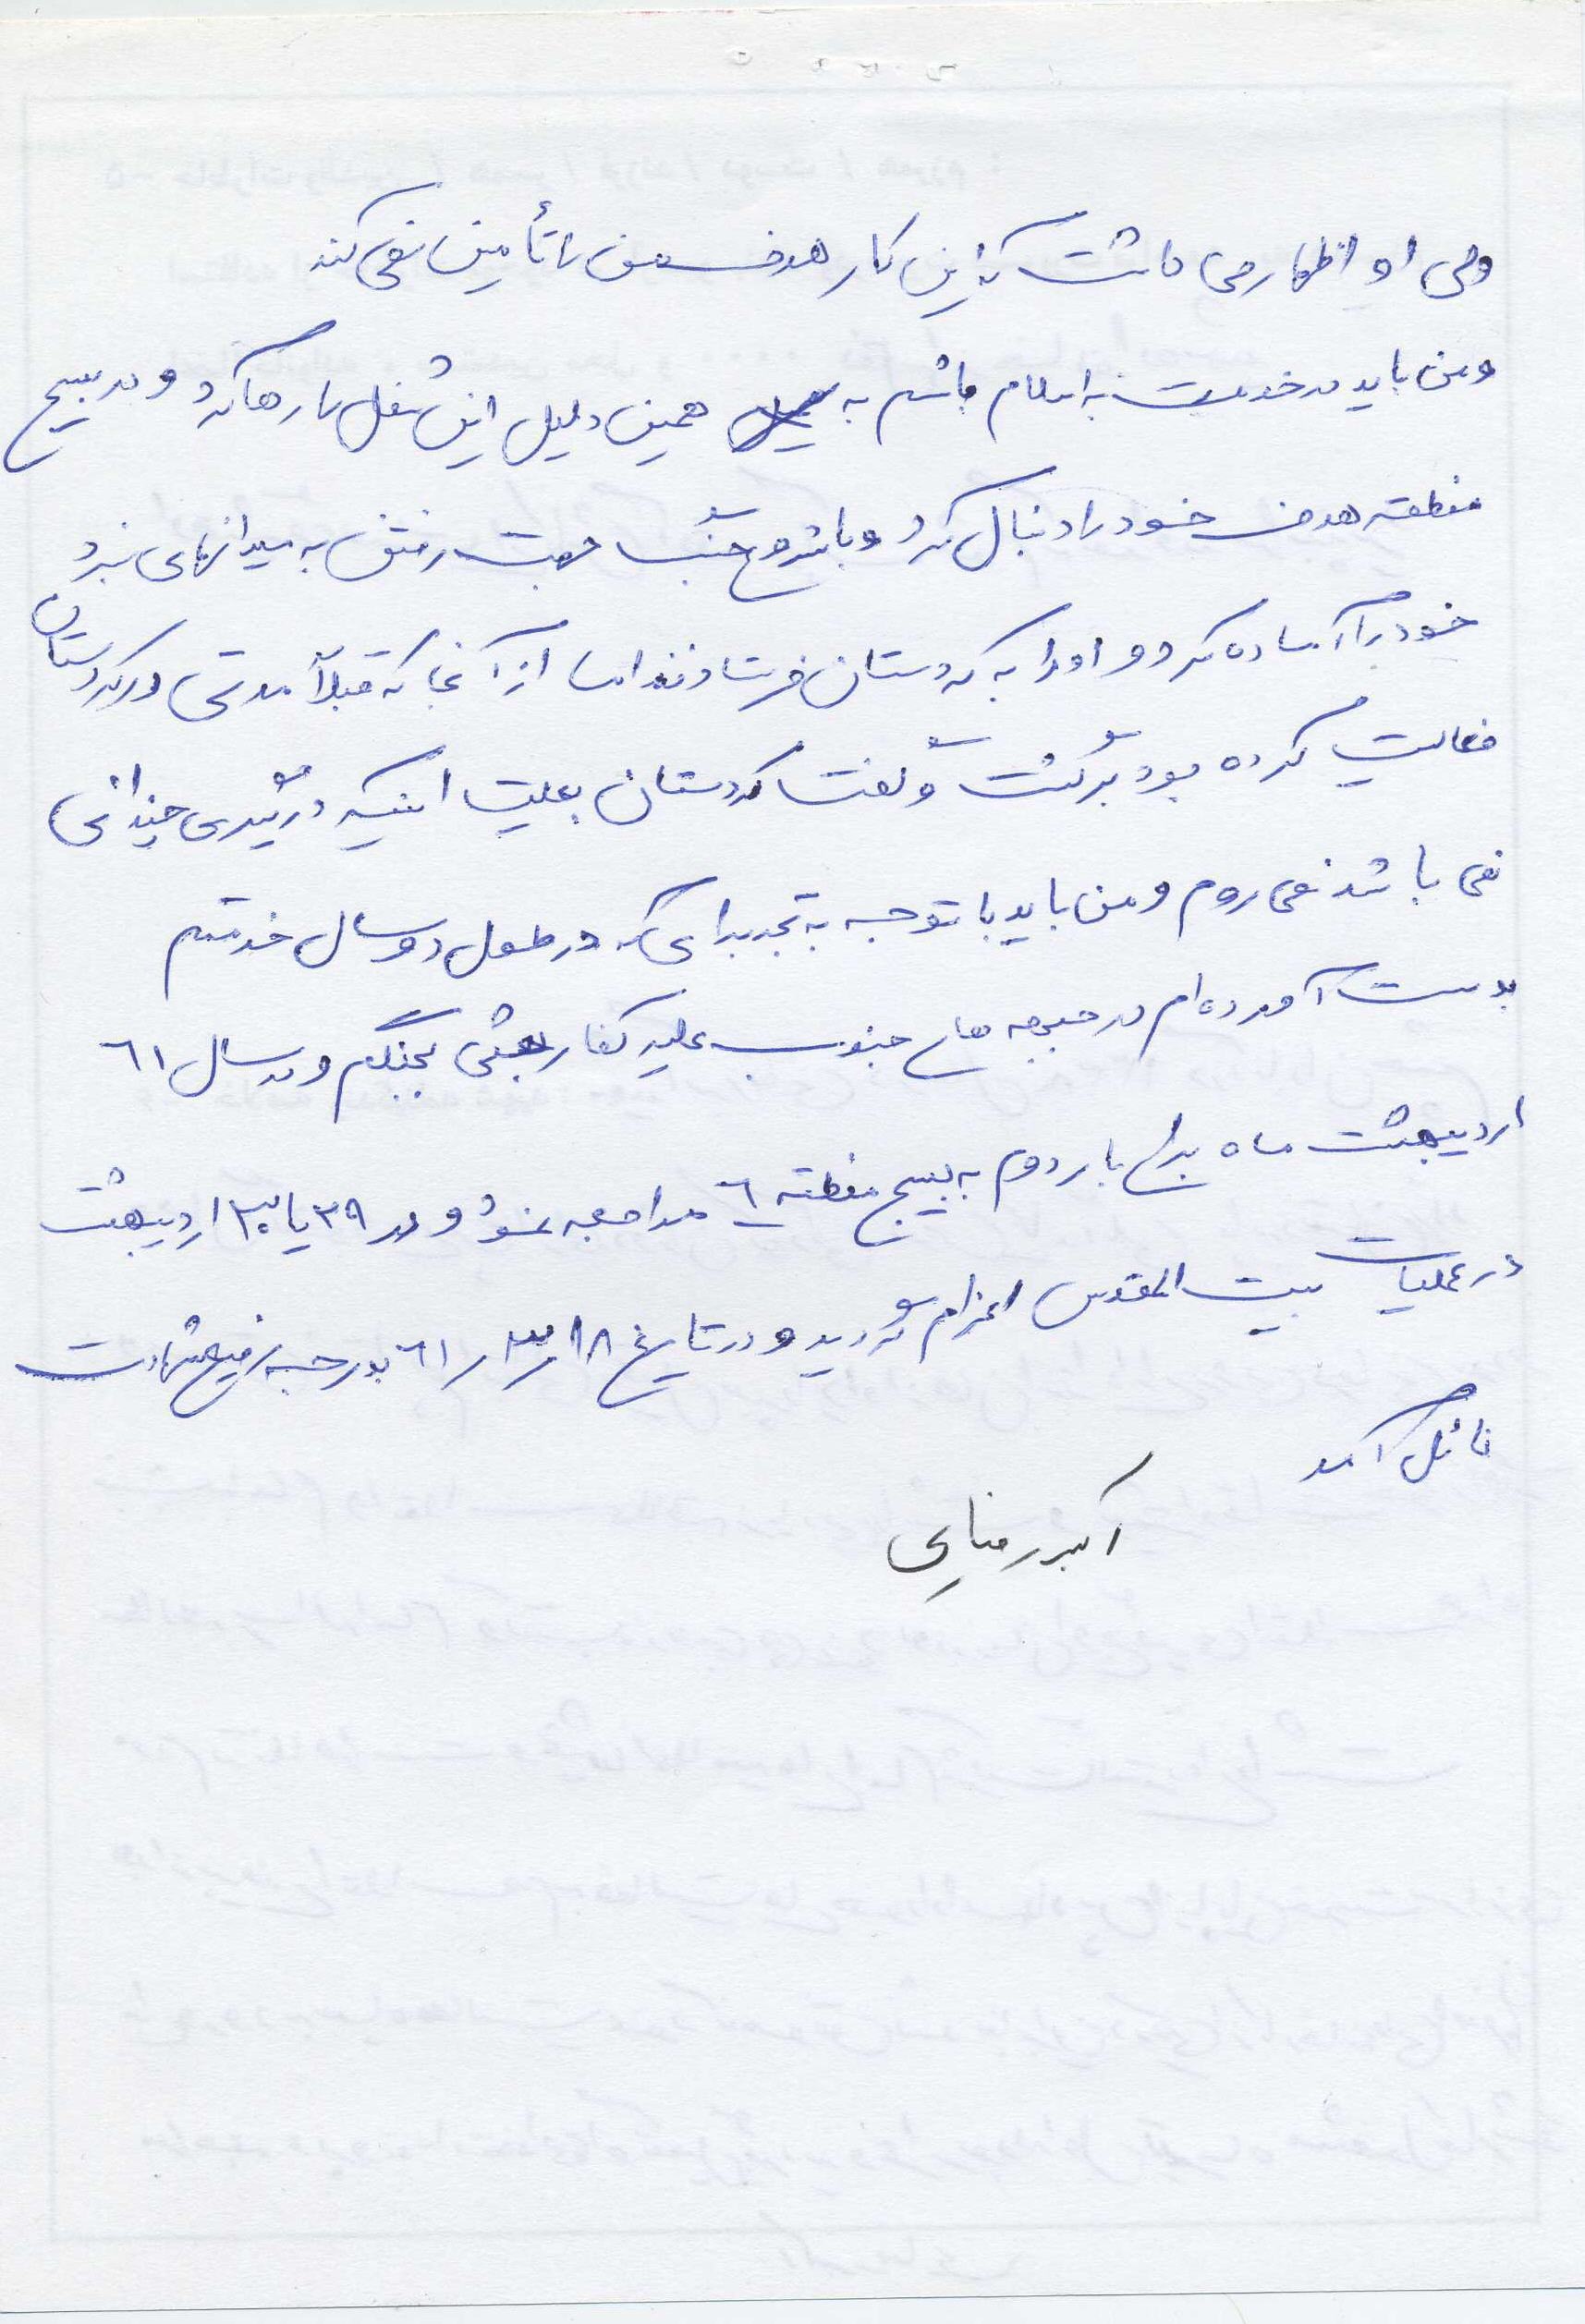 ولی او اظهار می داشت که این کار هدف من را تأمین نمی کند
و من باید در خدمت به اسلام باشم به همین دلیل این شغل را رها کرد و در بسیج
منطقه هدف خود را دنبال کرد و با شروع جنگ جهت رفتن به میدانهای نبرد
خود را آماده کرد و او را به کردستان فرستادند اما از آنجا که قبلاً مدتی در کردستان
فعالیت کرده بود برگشت و گفت کردستان بعلت اینکه درگیری چندانی
نمی باشد نمی روم و من باید با توجه به تجربه ای که در طول دو سال خدمتم
بدست آورده ام در جبهه های جنوب علیه کفار بعثی بجنگم و در سال ٦١
اردیبهشت ماه برای بار دوم به بسیج منطقه ٦ مراجعه نمود و در ٢٩ یا ٣٠ اردیبهشت
در عملیات بیت المقدس اعزام گردید و در تاریخ ٦١/٣/١٨ بدرجه رفیع شهادت
نائل آمد
اکبر رضایی